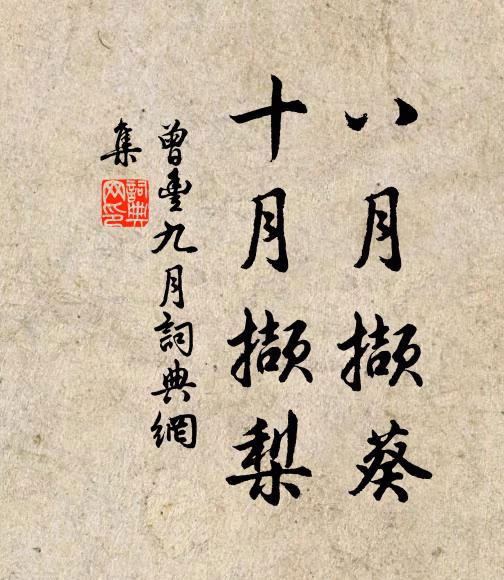 八月擷葵
十月擷梨
曾豐九月詞典網
集
詞典
网印